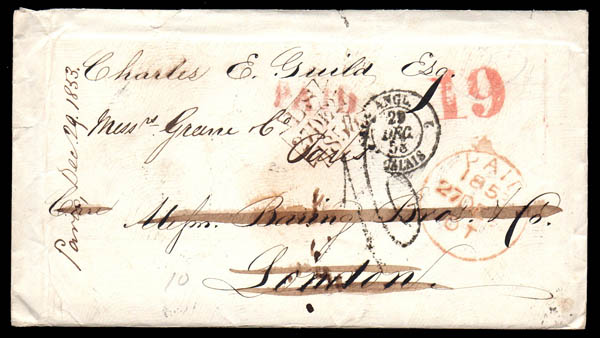 Charles E. Guild Esq.
PAID
19
Messrs Greene & Co
Paris
ANGL.
29
DEC.
53
CALAIS
Care Messrs. Baring Bros. & Co.
London.
PAID
185
27
Paris, Dec. 29. 1853.
10